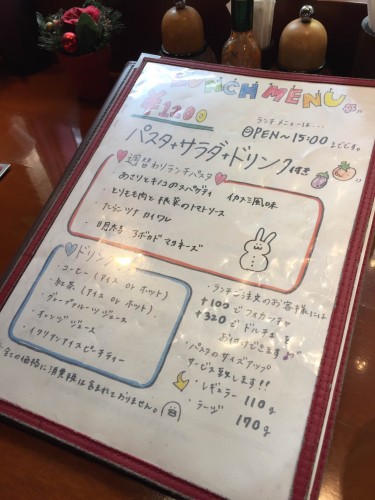 LUNCH MENU
¥1200
ランチメニューは...
OPEN～15:00 までです。
パスタ+サラダ+ドリンク付き
週替わりランチパスタ
・あさりとキノコのスパゲティ イカスミ風味
・とりもも肉と根菜のトマトソース
・たらこ ツナ カイワレ
・明太子 アボカド マヨネーズ
ドリンク
・コーヒー (アイス or ホット)
・紅茶 (アイス or ホット)
・グレープフルーツジュース
・オレンジジュース
・イタリアンアイスピーチティー
・ランチご注文のお客様には
+100でフォカッチャ
+320でドルチェを
お付けできます♪
・パスタのサイズアップ
サービス致します!!
・レギュラー 110g
・ラージ 170g
全ての価格に消費税は含まれておりません。